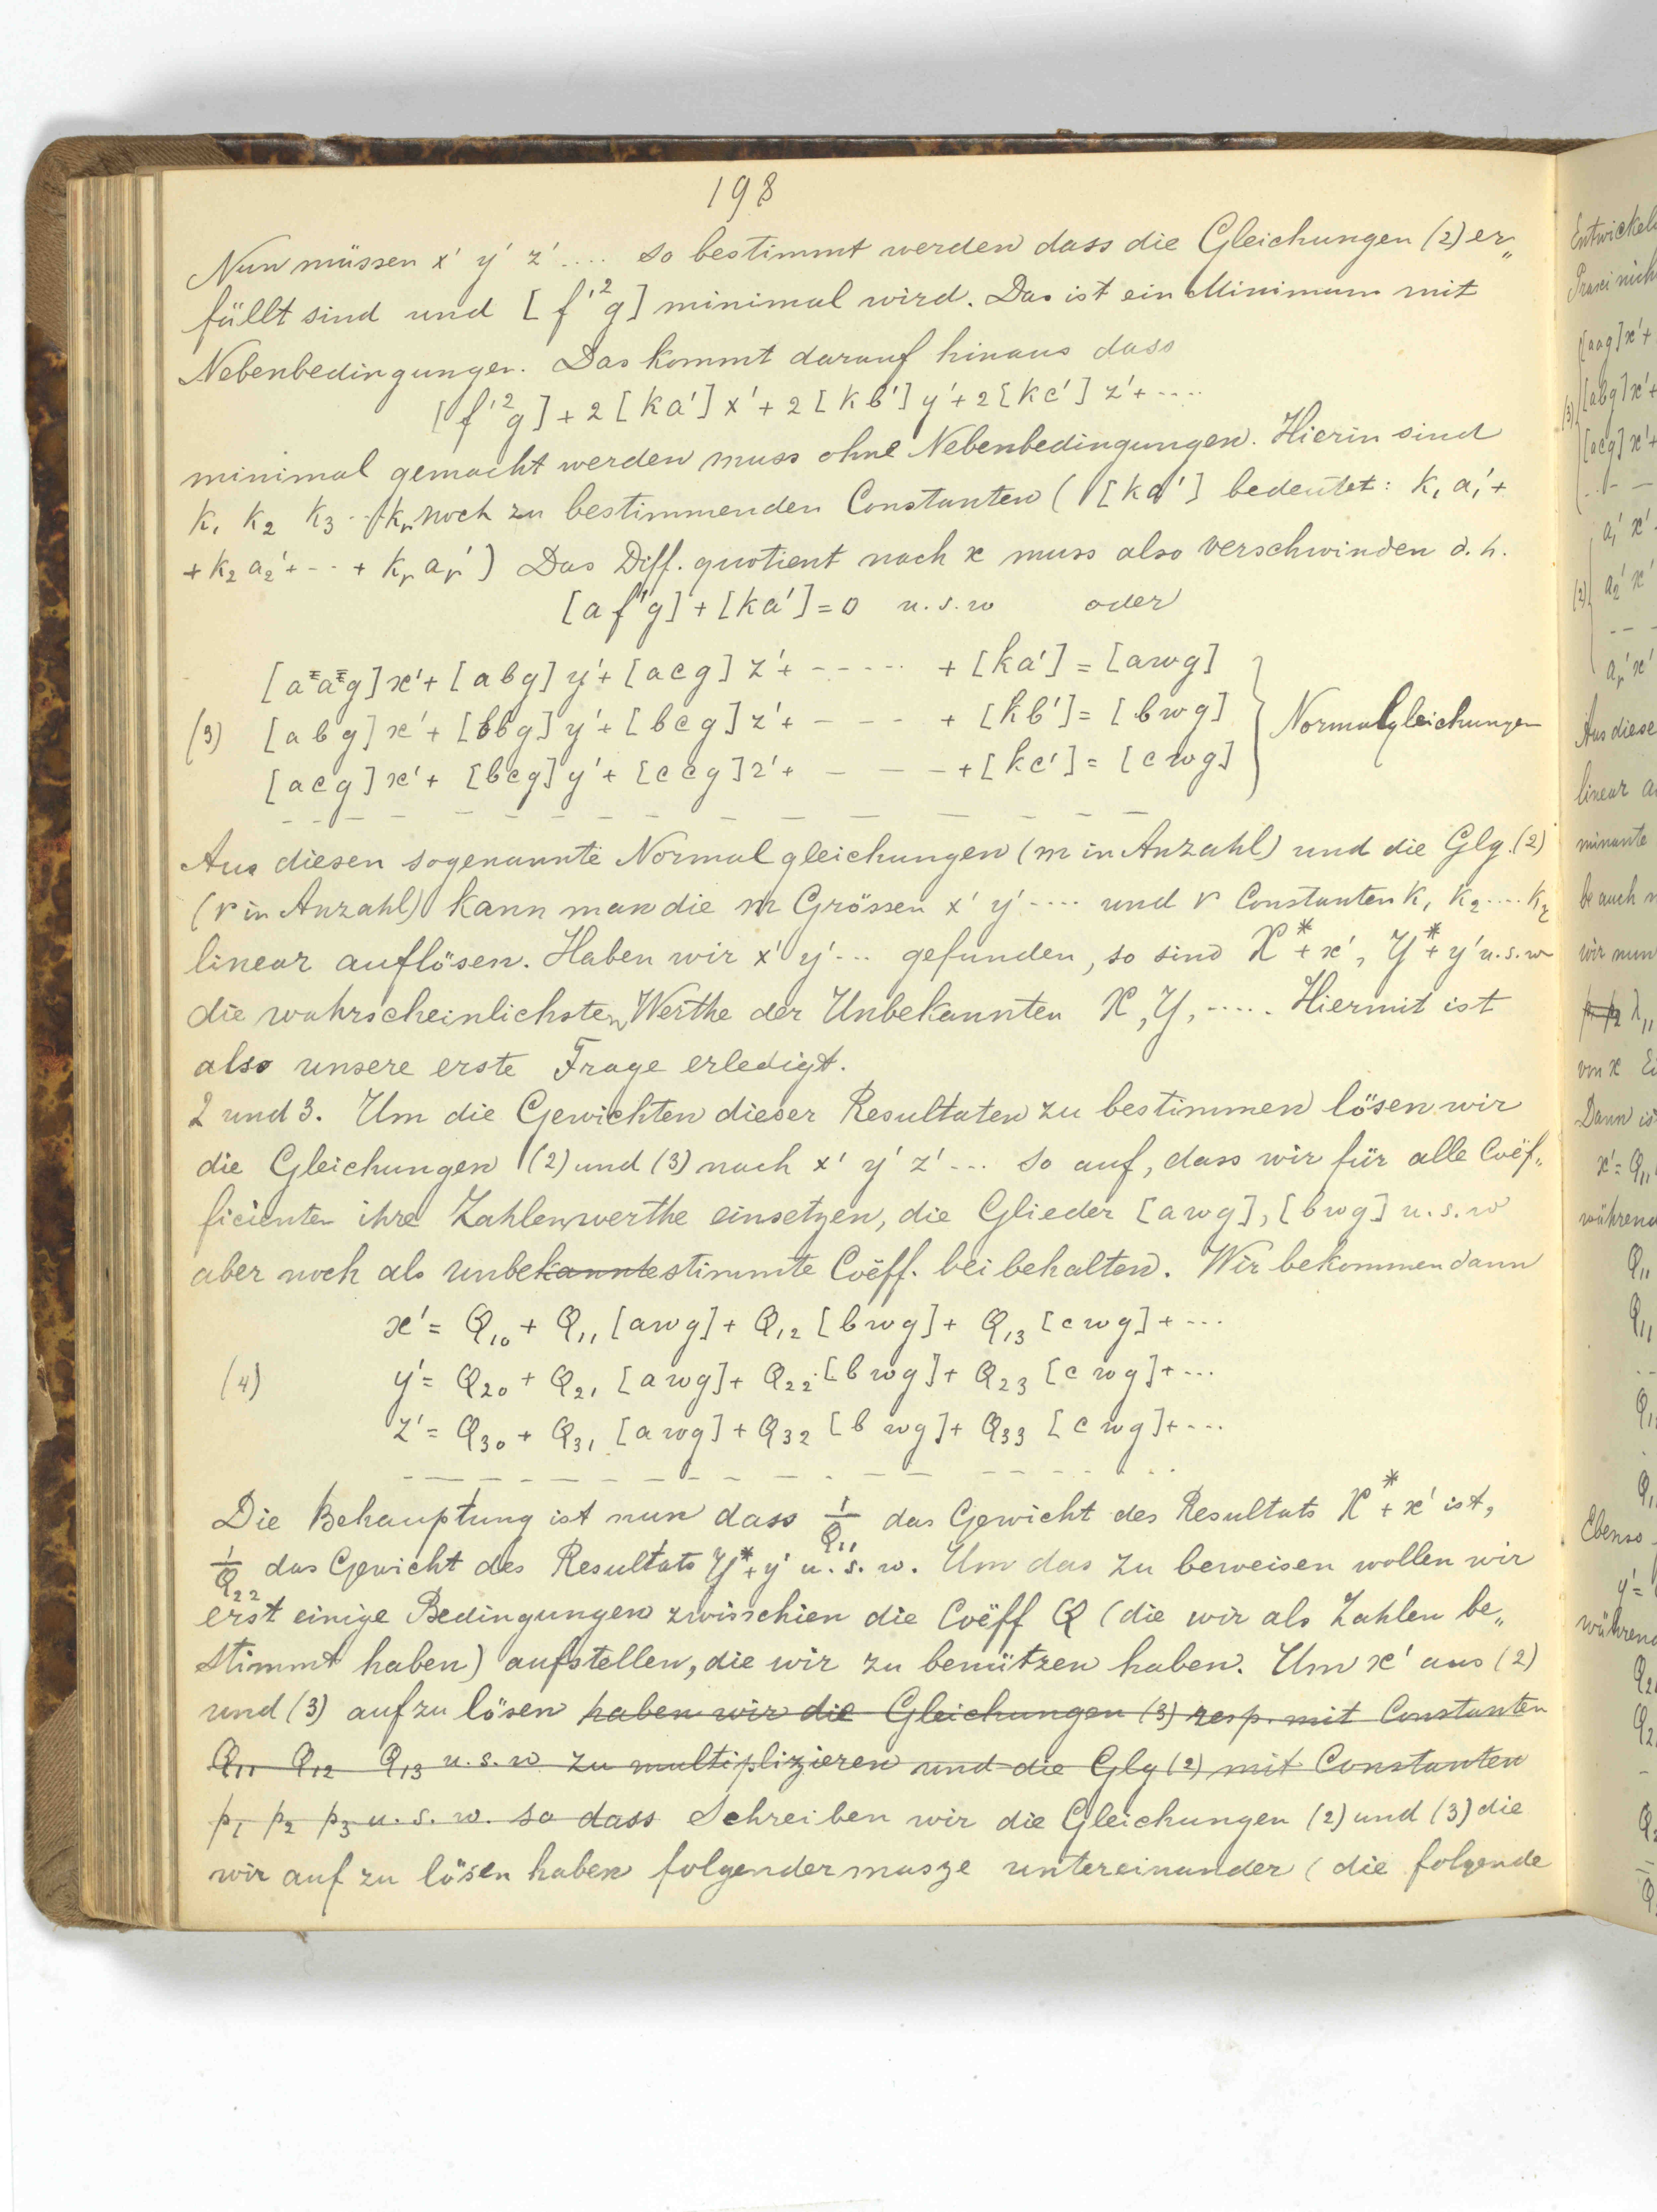 198
Nun müssen x' y' z' .... so bestimmt werden dass die Gleichungen (2) er„
füllt sind und [f'²g] minimal wird. Das ist ein Minimum mit
Nebenbedingungen. Das kommt darauf hinaus dass
[f'²g] + 2[ka']x' + 2[kb']y' + 2[kc']z' + ....
minimal gemacht werden muss ohne Nebenbedingungen. Hierin sind
k₁ k₂ k₃ ... kᵣ noch zu bestimmenden Constanten ([ka'] bedeutet: k₁a₁' +
+ k₂a₂' + --- + kᵣaᵣ') Das Diff. quotient nach x muss also verschwinden d. h.
[af'g] + [ka'] = 0 u. s. w oder
[aag]x' + [abg]y' + [acg]z' + ----- + [ka'] = [awg]
(3) [abg]x' + [bbg]y' + [bcg]z' + ---- + [kb'] = [bwg] } Normalgleichungen
[acg]x' + [bcg]y' + [ccg]z' + --- + [kc'] = [cwg]
Aus diesen sogenannte Normalgleichungen (m in Anzahl) und die Glg. (2)
(r in Anzahl) kann man die m Grössen x' y' .... und r Constanten k₁ k₂ .... kᵣ
linear auflösen. Haben wir x' y' ... gefunden, so sind X* + x', Y* + y' u. s. w
die wahrscheinlichsten Werthe der Unbekannten X, Y, ..... Hiermit ist
also unsere erste Frage erledigt.
2 und 3. Um die Gewichten dieser Resultaten zu bestimmen lösen wir
die Gleichungen (2) und (3) nach x' y' z' ... so auf, dass wir für alle Coëf„
ficienten ihre Zahlenwerthe einsetzen, die Glieder [awg], [bwg] u. s. w
aber noch als unbekanntestimmte Coëff. bei behalten. Wir bekommen dann
x' = Q₁₀ + Q₁₁ [awg] + Q₁₂ [bwg] + Q₁₃ [cwg] + ...
(4) y' = Q₂₀ + Q₂₁ [awg] + Q₂₂ [bwg] + Q₂₃ [cwg] + ...
z' = Q₃₀ + Q₃₁ [awg] + Q₃₂ [bwg] + Q₃₃ [cwg] + ...
Die Behauptung ist nun dass 1/Q₁₁ das Gewicht des Resultats X* + x' ist,
1/Q₂₂ das Gewicht des Resultats Y* + y' u. s. w. Um das zu beweisen wollen wir
erst einige Bedingungen zwisschien die Coëff Q (die wir als Zahlen be„
stimmt haben) aufstellen, die wir zu benützen haben. Um x' aus (2)
und (3) aufzulösen haben wir die Gleichungen (3) resp. mit Constanten
Q₁₁ Q₁₂ Q₁₃ u. s. w zu multiplizieren und die Glg (2) mit Constanten
p₁ p₂ p₃ u. s. w. so dass Schreiben wir die Gleichungen (2) und (3) die
wir auf zu lösen haben folgendermasze untereinander (die folgende
Entwickel
[aag]x' +
(3) [abg]x' +
[acg]x' +
a₁' x'
(2) a₂' x'
aᵣ' x'
Aus diese
linear a
minante
be auch
wir nun
von x
Dann is
x' = Q₁₁
während
Q₁₁
Ebenso
y' =
während